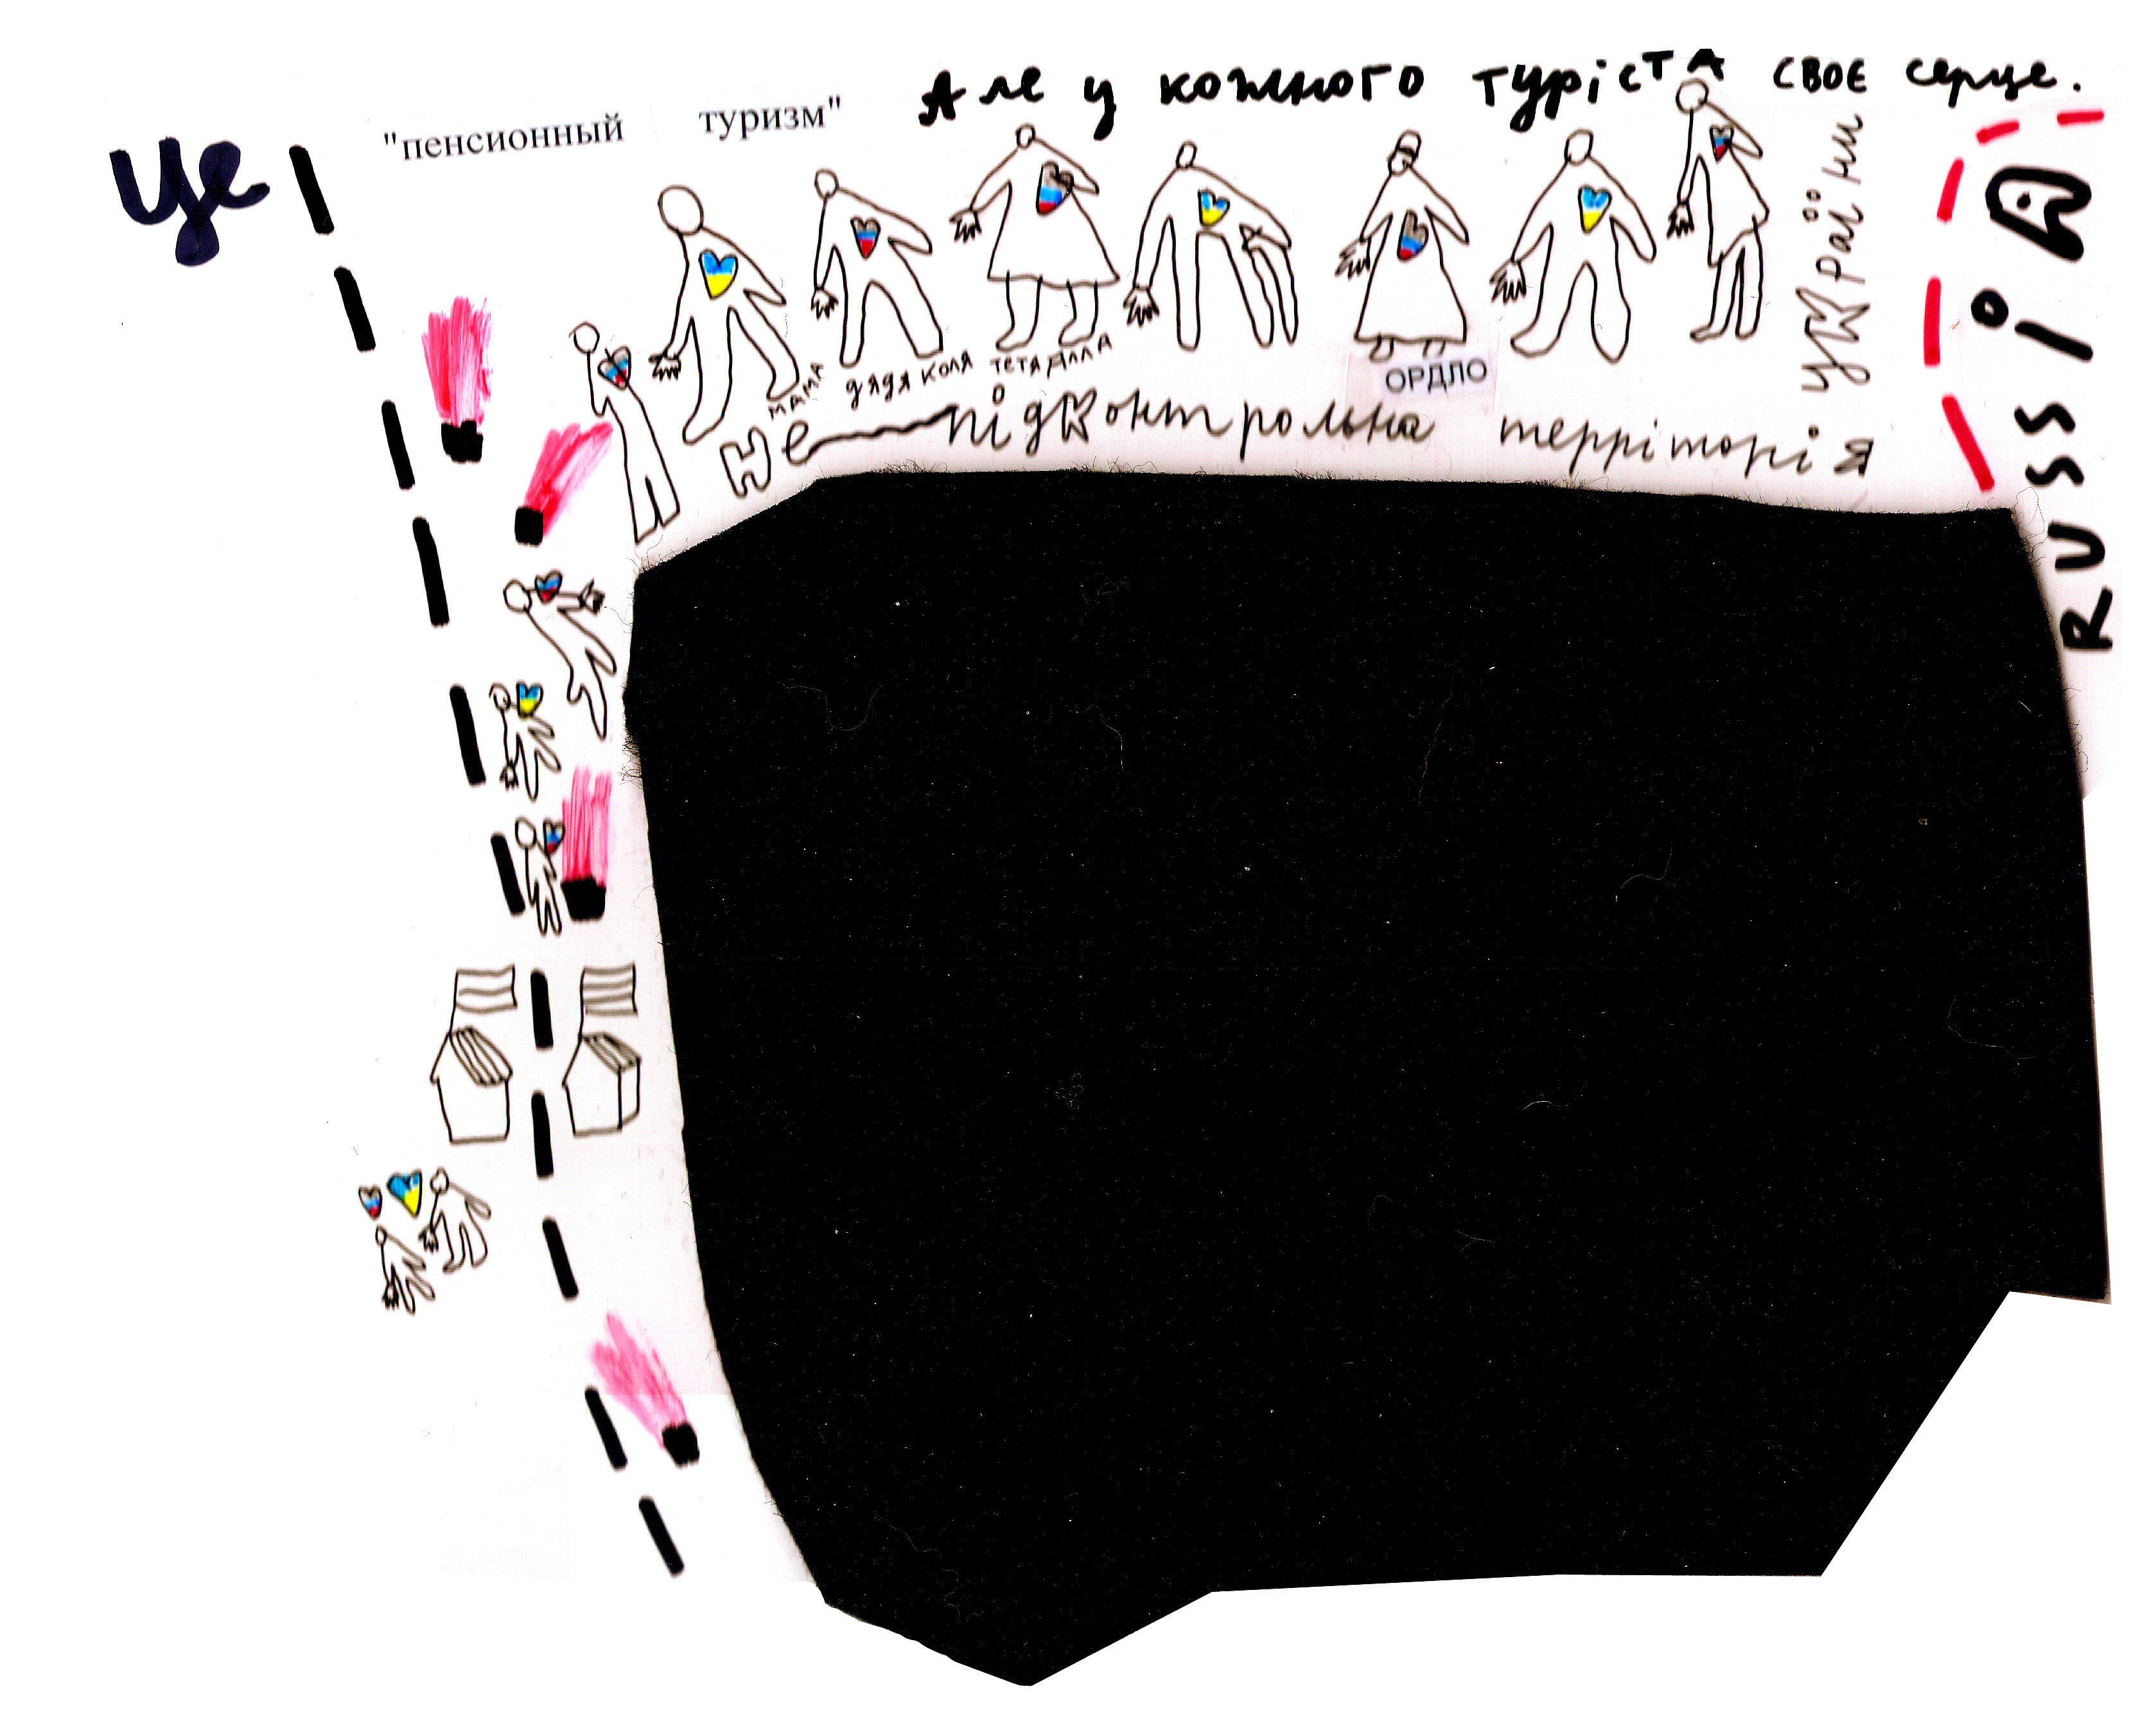 Це "пенсионный туризм" Але у кожного туріста своє серце.
мама дядя коля тетя алла
ОРДЛО
не підконтрольна террiторiя
україни
RUSSIA